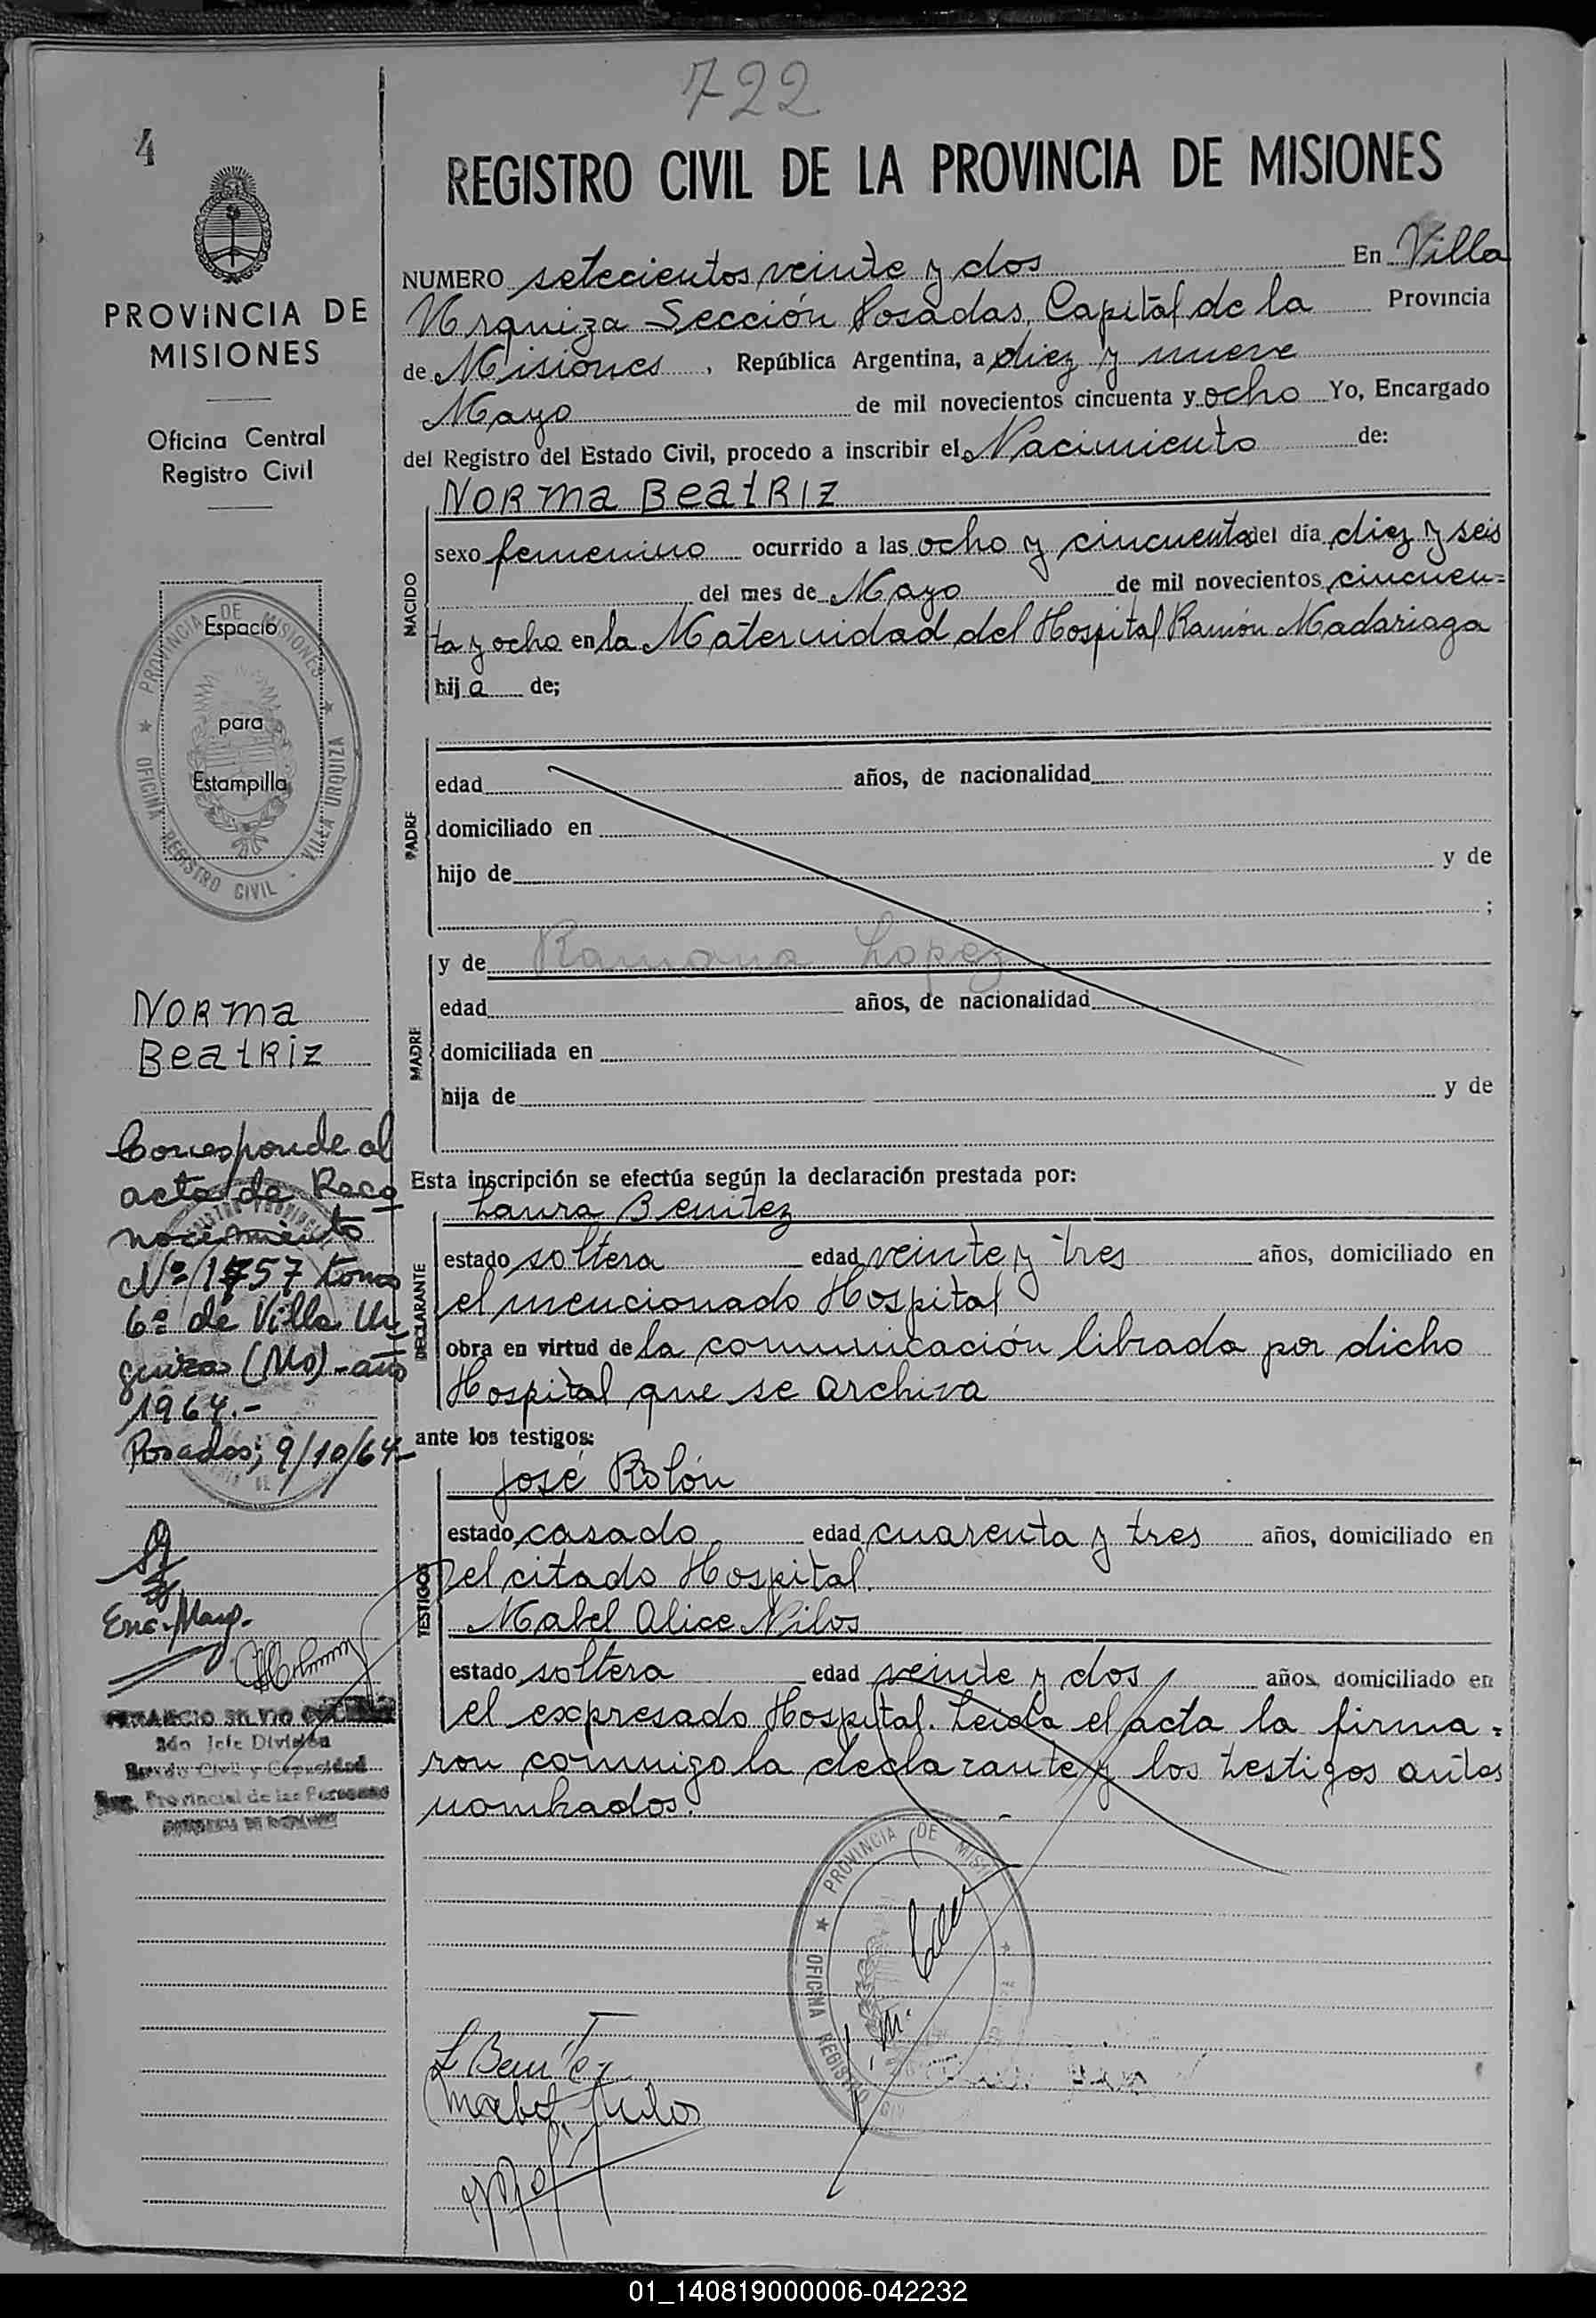 722
4
REGISTRO CIVIL DE LA PROVINCIA DE MISIONES
PROVINCIA DE
MISIONES
Oficina Central
Registro Civil
NUMERO setecientos veinte y dos En Villa
Urquiza Sección Posadas, Capital de la Provincia
de Misiones, República Argentina, a diez y nueve
Mayo de mil novecientos cincuenta y ocho Yo, Encargado
del Registro del Estado Civil, procedo a inscribir el Nacimiento de:
NORMA BEATRIZ
sexo femenino ocurrido a las ocho y cincuenta del día diez y seis
del mes de Mayo de mil novecientos cincuen=
ta y ocho en la Maternidad del Hospital Ramón Madariaga
hija de;
NACIDO
Espacio
para
Estampilla
PROVINCIA DE MISIONES
OFICINA REGISTRO CIVIL - VILLA URQUIZA
PADRE
edad años, de nacionalidad
domiciliado en
hijo de y de
;
MADRE
y de Ramona Lopez
edad años, de nacionalidad
domiciliada en
hija de y de
NORMA
BEATRIZ
Corresponde al
acta de Reco
nocimiento
Nº 1757 tomo
6º de Villa Ur
quiza (Mo) - año
1964.-
Posadas; 9/10/64-
Esta inscripción se efectúa según la declaración prestada por:
DECLARANTE
Laura Benitez
estado soltera edad veinte y tres años, domiciliado en
el mencionado Hospital
obra en virtud de la comunicación librada por dicho
Hospital que se archiva
ante los testigos:
TESTIGOS
José Rolón
estado casado edad cuarenta y tres años, domiciliado en
el citado Hospital.
Mabel Alice Nilos
estado soltera edad veinte y dos años, domiciliado en
el expresado Hospital. Leida el acta la firma=
ron conmigo la declarante y los testigos antes
nombrados.
2do Jefe División
Estado Civil y Capacidad
Reg. Provincial de las Personas
PROVINCIA DE MISI
OFICINA REGIST
L Benítez
Mabel Nilos
01_140819000006-042232